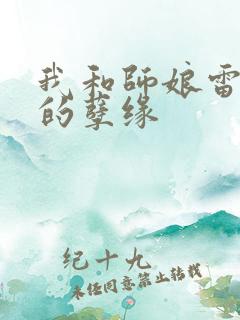 我和师娘雷
的孽缘
纪十九
未经同意禁止转载